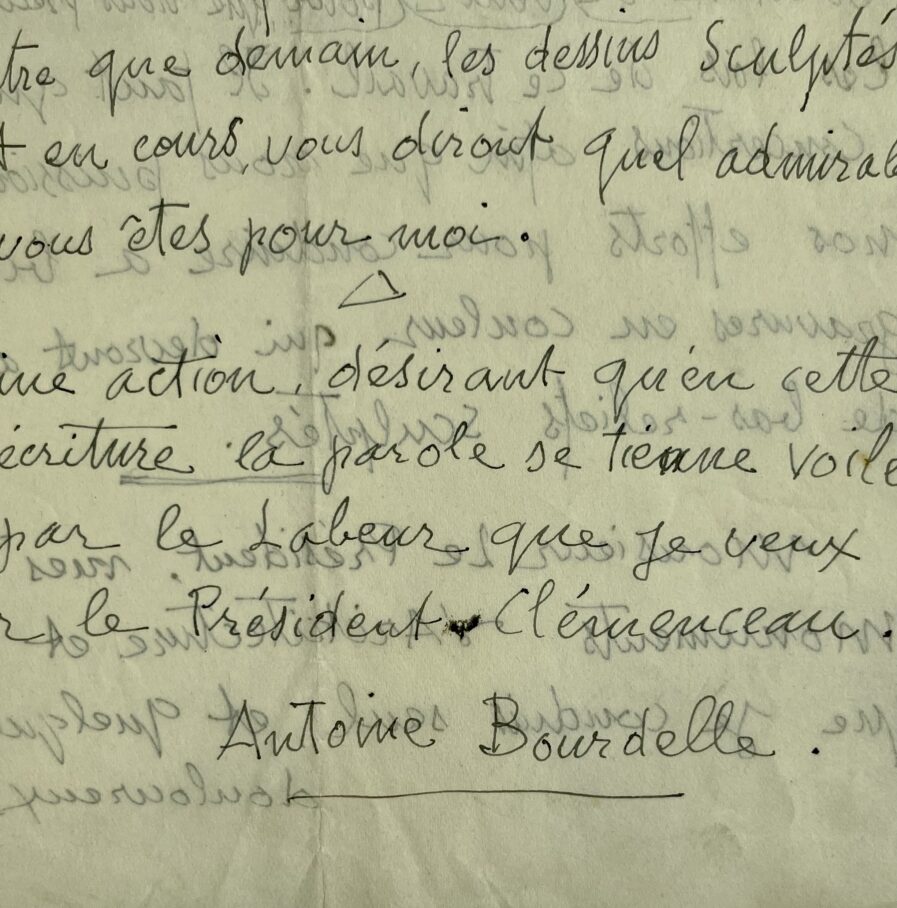 tre que demain, les dessins Sculptés
t en cours, vous diront quel admirab
vous êtes pour moi.
ine action, désirant qu'en cette
écriture la parole se tienne voilé
par le Labeur que je veux
r le Président Clémenceau.
Antoine Bourdelle.